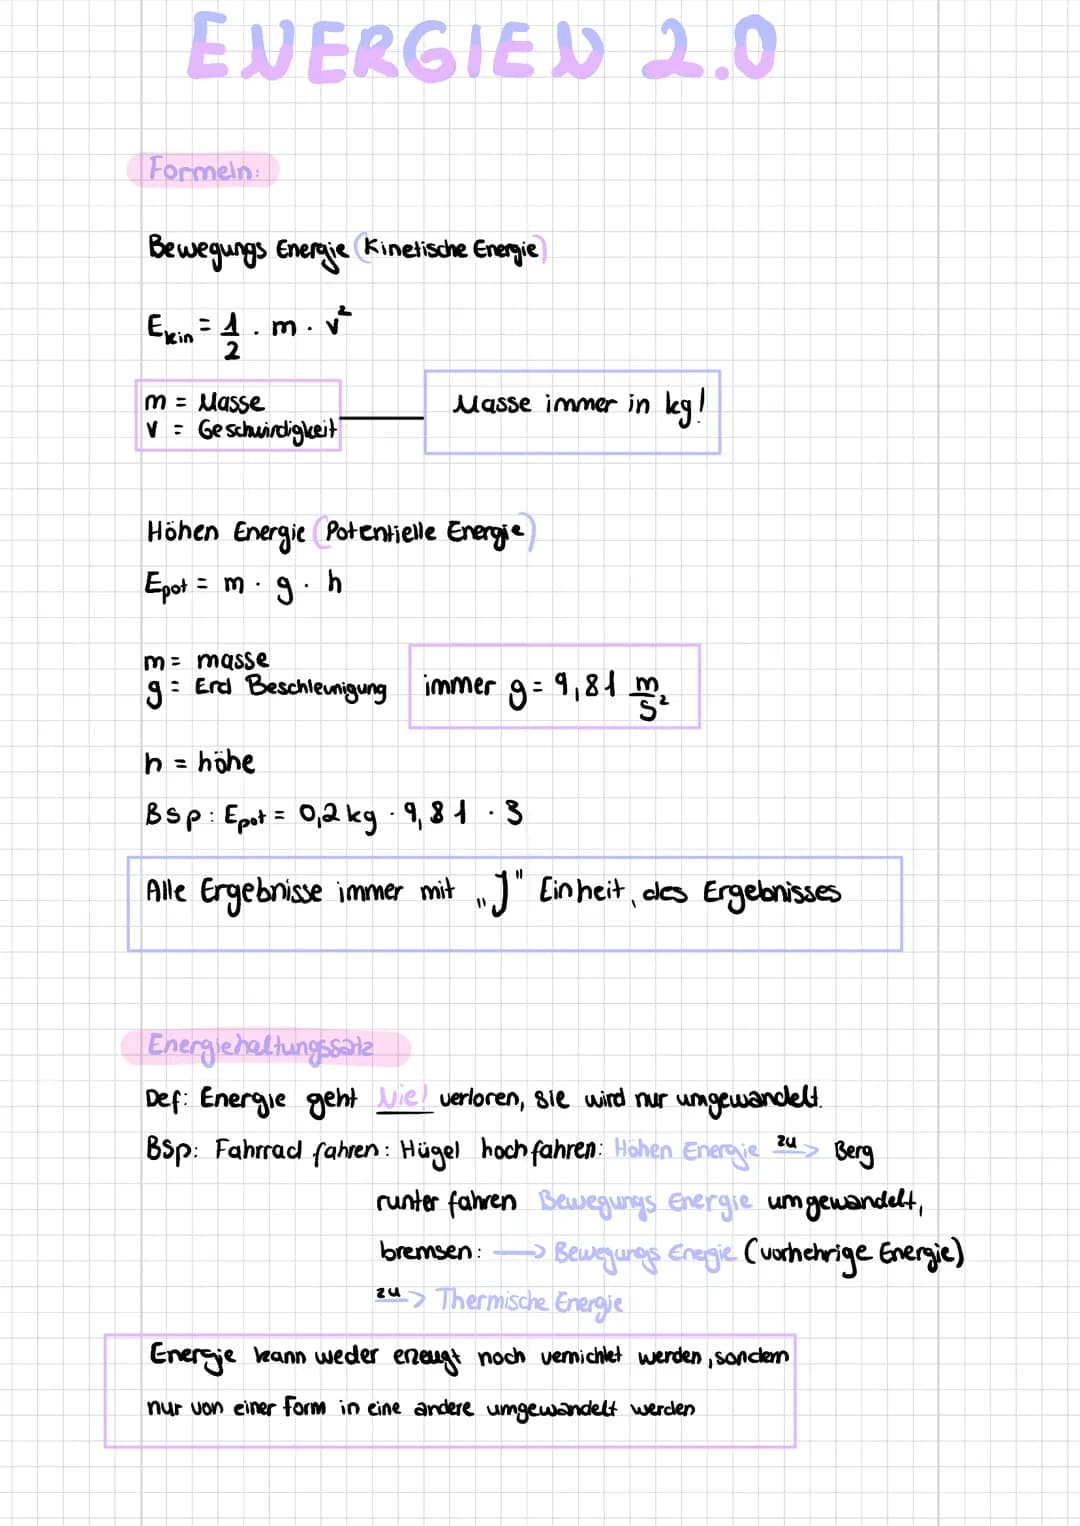 ENERGIEN 2.0
Formeln:
Bewegungs Energie (Kinetische Energie)
E_kin = 1/2 · m · v²
m = Masse
v = Geschwindigkeit
Masse immer in kg!
Höhen Energie (Potentielle Energie)
E_pot = m · g · h
m = masse
g = Erd Beschleunigung
immer g = 9,81 m/s²
h = höhe
Bsp: E_pot = 0,2 kg · 9,81 · 3
Alle Ergebnisse immer mit „J" Einheit, des Ergebnisses
Energiehaltungssatz
Def: Energie geht Nie! verloren, sie wird nur umgewandelt.
BSp: Fahrrad fahren: Hügel hoch fahren: Höhen Energie zu → Berg
runter fahren Bewegungs Energie umgewandelt,
bremsen: → Bewegungs Energie (vorhehrige Energie)
zu → Thermische Energie
Energie kann weder erzeugt noch vernichtet werden, sondern
nur von einer Form in eine andere umgewandelt werden